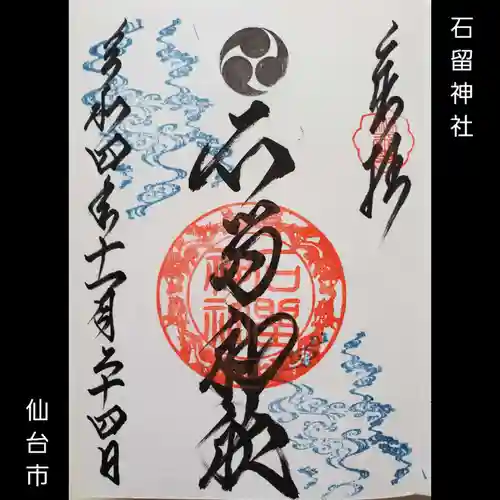 石留神社
奉拝
石留神社
石留神社
令和四年十一月二十四日
仙台市